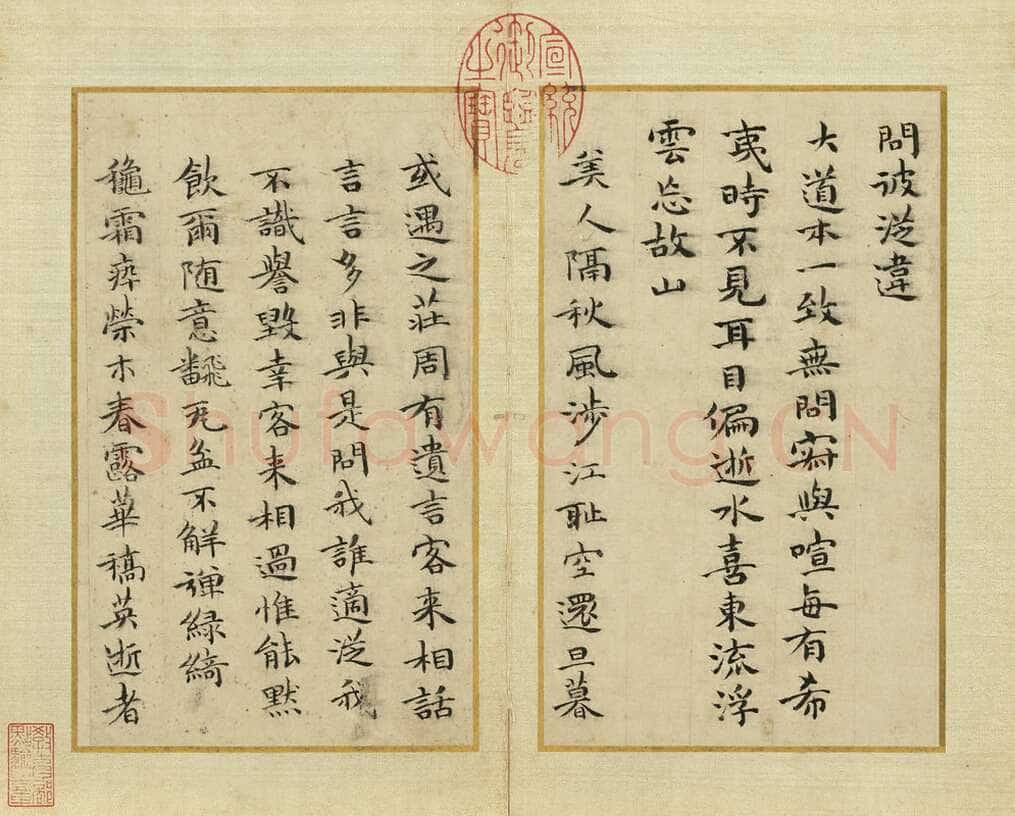 問彼從違
大道本一致無問寂與喧每有希
夷時不見耳目偏逝水喜東流浮
雲忘故山
美人隔秋風涉江恥空還旦暮
或遇之莊周有遺言客来相話
言言多非與是問我誰適從我
不識譽毀幸客来相過惟能默
飲爾随意飜瓦盆不解彈緑綺
龝霜瘁榮木春露華槁英逝者
宣統御覽之寶
Shufawang.CN